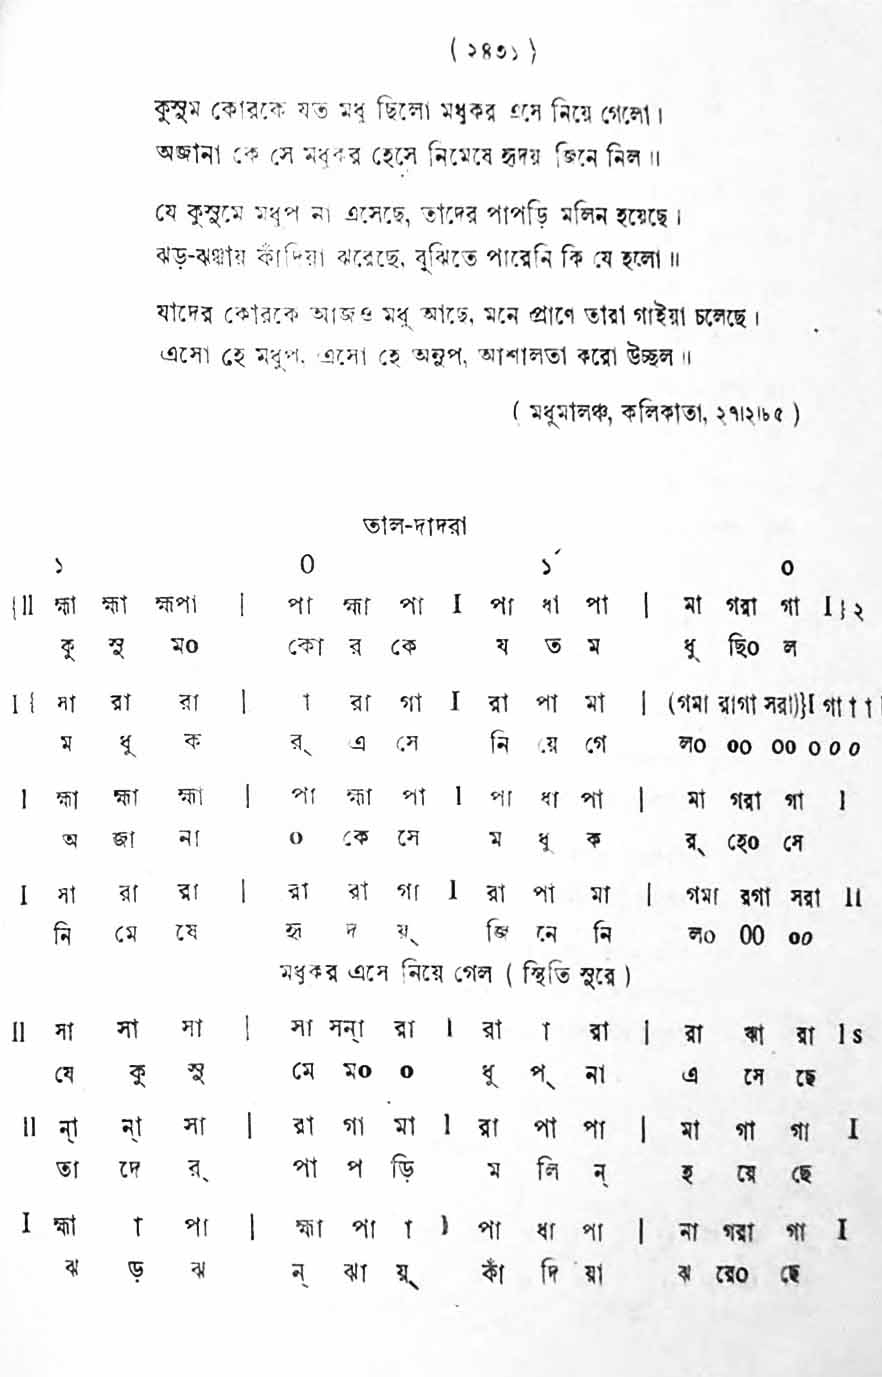 ( ২৪৩১ )
কুসুম কোরকে যত মধু ছিলো মধুকর এসে নিয়ে গেলো।
অজানা কে সে মধুকর হেসে নিমেষে হৃদয় জিনে নিল॥
যে কুসুমে মধুপ না এসেছে, তাদের পাপড়ি মলিন হয়েছে।
ঝড়-ঝঞ্ঝায় কাঁদিয়া ঝরেছে, বুঝিতে পারেনি কি যে হলো॥
যাদের কোরকে আজও মধু আছে, মনে প্রাণে তারা গাইয়া চলেছে।
এসো হে মধুপ, এসো হে অনুপ, আশালতা করো উচ্ছল॥
( মধুমালঞ্চ, কলিকাতা, ২৭।২।৮৫ )
তাল-দাদরা
১ 0 ১´ ০
{II হ্মা হ্মা হ্মপা | পা হ্মা পা I পা ধা পা | মা গরা গা I} ২
কু সু ম০ কো র কে য ত ম ধু ছি০ ল
I { সা রা রা | া রা গা I রা পা মা | (গমা রাগা সরা)}I গা া া
ম ধু ক র্ এ সে নি য়ে গে ল০ ০০ ০০ ০ ০ ০
I হ্মা হ্মা হ্মা | পা হ্মা পা I পা ধা পা | মা গরা গা I
অ জা না ০ কে সে ম ধু ক র্ হে০ সে
I সা রা রা | রা রা গা I রা পা মা | গমা রগা সরা II
নি মে ষে হৃ দ য়্ জি নে নি ল০ 00 ০০
মধুকর এসে নিয়ে গেল ( স্থিতি সুরে )
II সা সা সা | সা সন্া রা I রা া রা | রা ঋা রা I s
যে কু সু মে ম০ ০ ধু প্ না এ সে ছে
II ন্া ন্া সা | রা গা মা I রা পা পা | মা গা গা I
তা দে র্ পা প ড়ি ম লি ন্ হ য়ে ছে
I হ্মা া পা | হ্মা পা া I পা ধা পা | না গরা গা I
ঝ ড় ঝ ন্ ঝা য়্ কাঁ দি য়া ঝ রে০ ছে